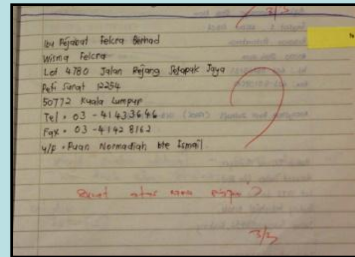 3/3
Ibu Pejabat Felcra Berhad
Wisma Felcra
Lot 4780 Jalan Rejang Setapak Jaya
Peti Surat 12254
50772 Kuala Lumpur
Tel : 03 - 41433646
Fax : 03 - 4142 8162
u/p : Puan Normadiah bte Ismail
Surat atas nama
3/3